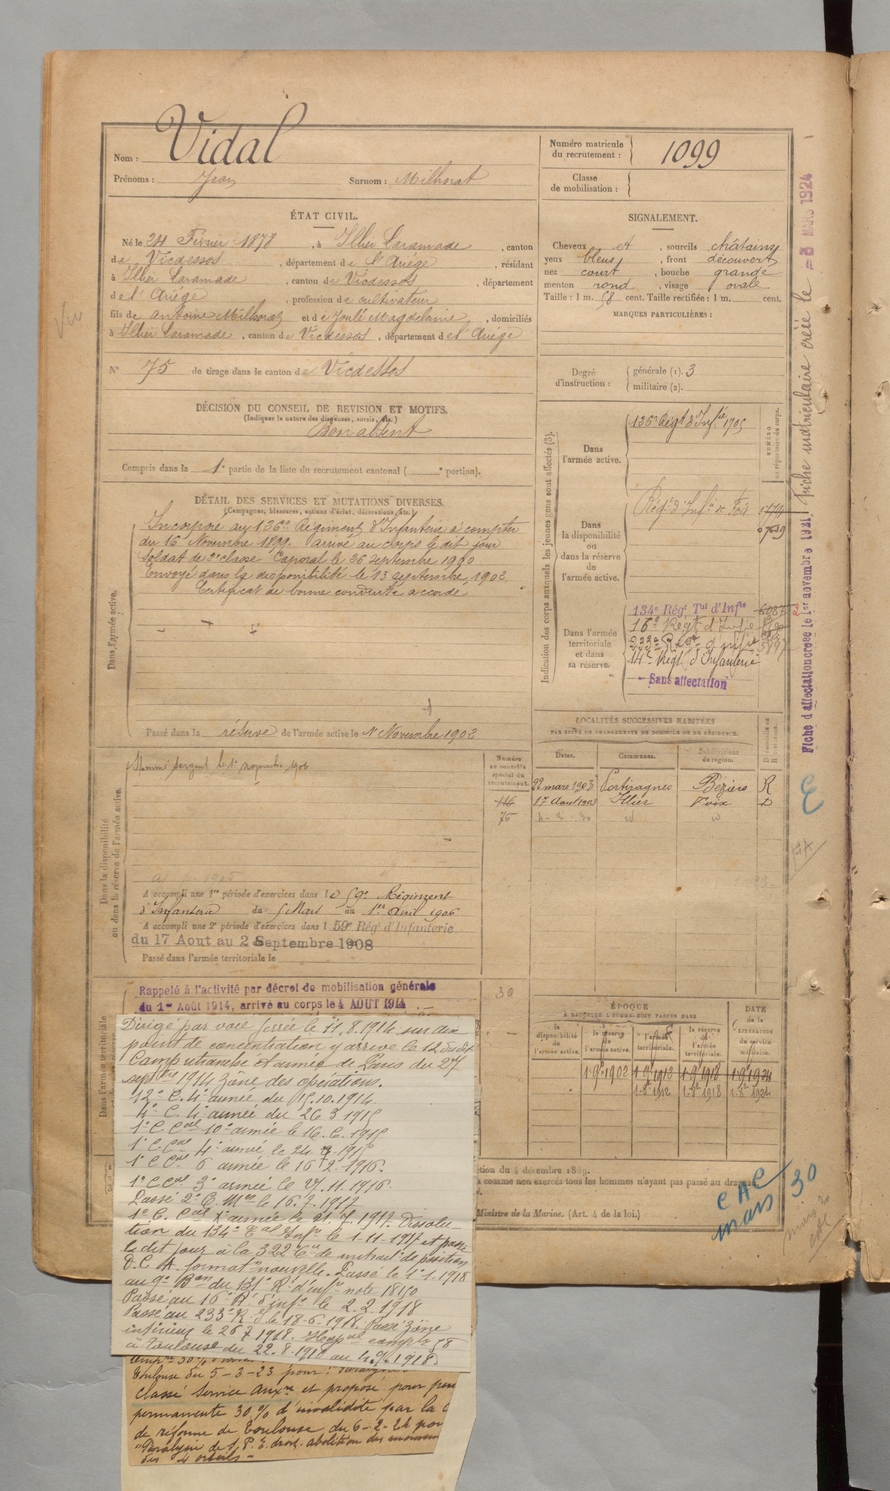 Nom : Vidal
Prénoms : Jean Surnom : Milhorat
Numéro matricule du recrutement : 1099
Classe de mobilisation :
ÉTAT CIVIL.
Né le 24 Février 1878, à Illier Laramade, canton
de Vicdessos, département de l'Ariége, résidant
à Illier Laramade, canton de Vicdessos, département
d el' Ariége, profession de cultivateur
fils de Antoine Milhorat et de Joulé Magdelaine, domiciliés
à Illier Laramade, canton de Vicdessos, département d el Ariége
N° 75 de tirage dans le canton de Vicdessos
SIGNALEMENT.
Cheveux et, sourcils châtains
yeux bleus, front découvert
nez court, bouche grande
menton rond, visage ovale
Taille : 1 m. 58 cent. Taille rectifiée : 1 m. cent.
MARQUES PARTICULIÈRES :
Degré d'instruction : générale (1). 3
militaire (2).
DÉCISION DU CONSEIL DE REVISION ET MOTIFS.
(Indiquer la nature des dispenses, sursis, etc.)
Bon absent
Compris dans la 1e partie de la liste du recrutement cantonal ( e portion).
DÉTAIL DES SERVICES ET MUTATIONS DIVERSES.
(Campagnes, blessures, actions d'éclat, décorations, etc.)
Incorporé au 136e Régiment d'Infanterie à compter
du 16 Novembre 1899. arrivé au corps le dit jour
soldat de 2e classe Caporal le 26 septembre 1900
Envoyé dans la disponibilité le 23 septembre 1902
Certificat de bonne conduite accordé
Dans l'armée active.
Passé dans la réserve de l'armée active le 1er Novembre 1902
Indication des corps auxquels les jeunes gens sont affectés (3).
Dans l'armée active.
136e Régt d'Infie 1705
Dans la disponibilité ou dans la réserve de l'armée active.
Régt d'Infie de Foix
Dans l'armée territoriale et dans sa réserve.
134e Rég. Tal d'Infie
16e Régt d'Infie
233e Régt d'Infie
14e Régt d'Infanterie
Sans affectation
LOCALITÉS SUCCESSIVES HABITÉES
PAR SUITE DE CHANGEMENTS DE DOMICILE OU DE RÉSIDENCE.
Dates. Communes. Subdivisions de région.
22 mars 1903 Portiragnes Béziers R
1er Aout 1903 Illier Foix D
Numéro au contrôle spécial du recrutement.
75
Dans la disponibilité ou dans la réserve de l'armée active.
Nommé sergent le 1er novembre 1906
A accompli une 1re période d'exercices dans le 59e Régiment
d'Infanterie du 5 Mars au 1er Avril 1906
A accompli une 2e période d'exercices dans l 59e Rég. d'Infanterie
du 17 Aout au 2 Septembre 1908
Passé dans l'armée territoriale le
Dans l'armée territoriale
Rappelé à l'activité par décret de mobilisation générale
du 1er Août 1914, arrivé au corps le 4 AOUT 1914
Dirigé par voie ferrée le 11.8.1914 sur un
point de concentration y arrive le 12 dudit
Camp retranché et armée de Paris du 27
septbre 1914 zône des opérations.
12e C. 4e armée du 15.10.1914.
4e C. 4e armée du 26.3.1915
1e C. Cal 10e armée le 16.6.1915
1e C. Cal 4e armée le 24.7.1915
1e C. Cal 6 armée le 16.2.1916.
1e C. Cal 3e armée le 27.11.1916
Passé 2e C. Mse le 16.2.1917
tion du 134e Tal d'Infie le 1-11-1917 et passé
le dit jour à la 322 Cie de mitrail. de position
D.C.A. formaton nouvelle. Passé le 1-1-1918
au 9e Bon du 131e R.t d'infie note 1840
Passé au 16e R.t d'infie le 2.2.1918
Passé au 233e R.I le 18-6-1918. Passé zône
intérieur le 26.7.1918. Hopal compl. 58
à Toulouse du 22.8.1918
Toulouse du 5-3-23 pour :
classé service auxre et proposé pour pen
permanente 30% d'invalidité par la C
de réforme de Toulouse du 6-2-24 pour
"Paralysie de S.P.E. droit. abolition des mouvem
des 4 orteils -
30
ÉPOQUE
À LAQUELLE L'HOMME DOIT PASSER DANS
la disponibilité de l'armée active.
la réserve de l'armée active.
l'armée territoriale.
la réserve de l'armée territoriale.
DATE de la LIBÉRATION du service militaire.
1.9bre1902 1.9bre1912 1.9bre1918 1.9bre1924
1.8bre1912 1.8bre1918 1.8bre1924
à comme non exercés tous les hommes n'ayant pas passé au drapeau
Ministre de la Marine. (Art. 4 de la loi.)
CAC
mars 30
Fiche d'affectation créée le 1er novembre 1921
Fiche matriculaire créée le = 3 MARS 1924
Vu